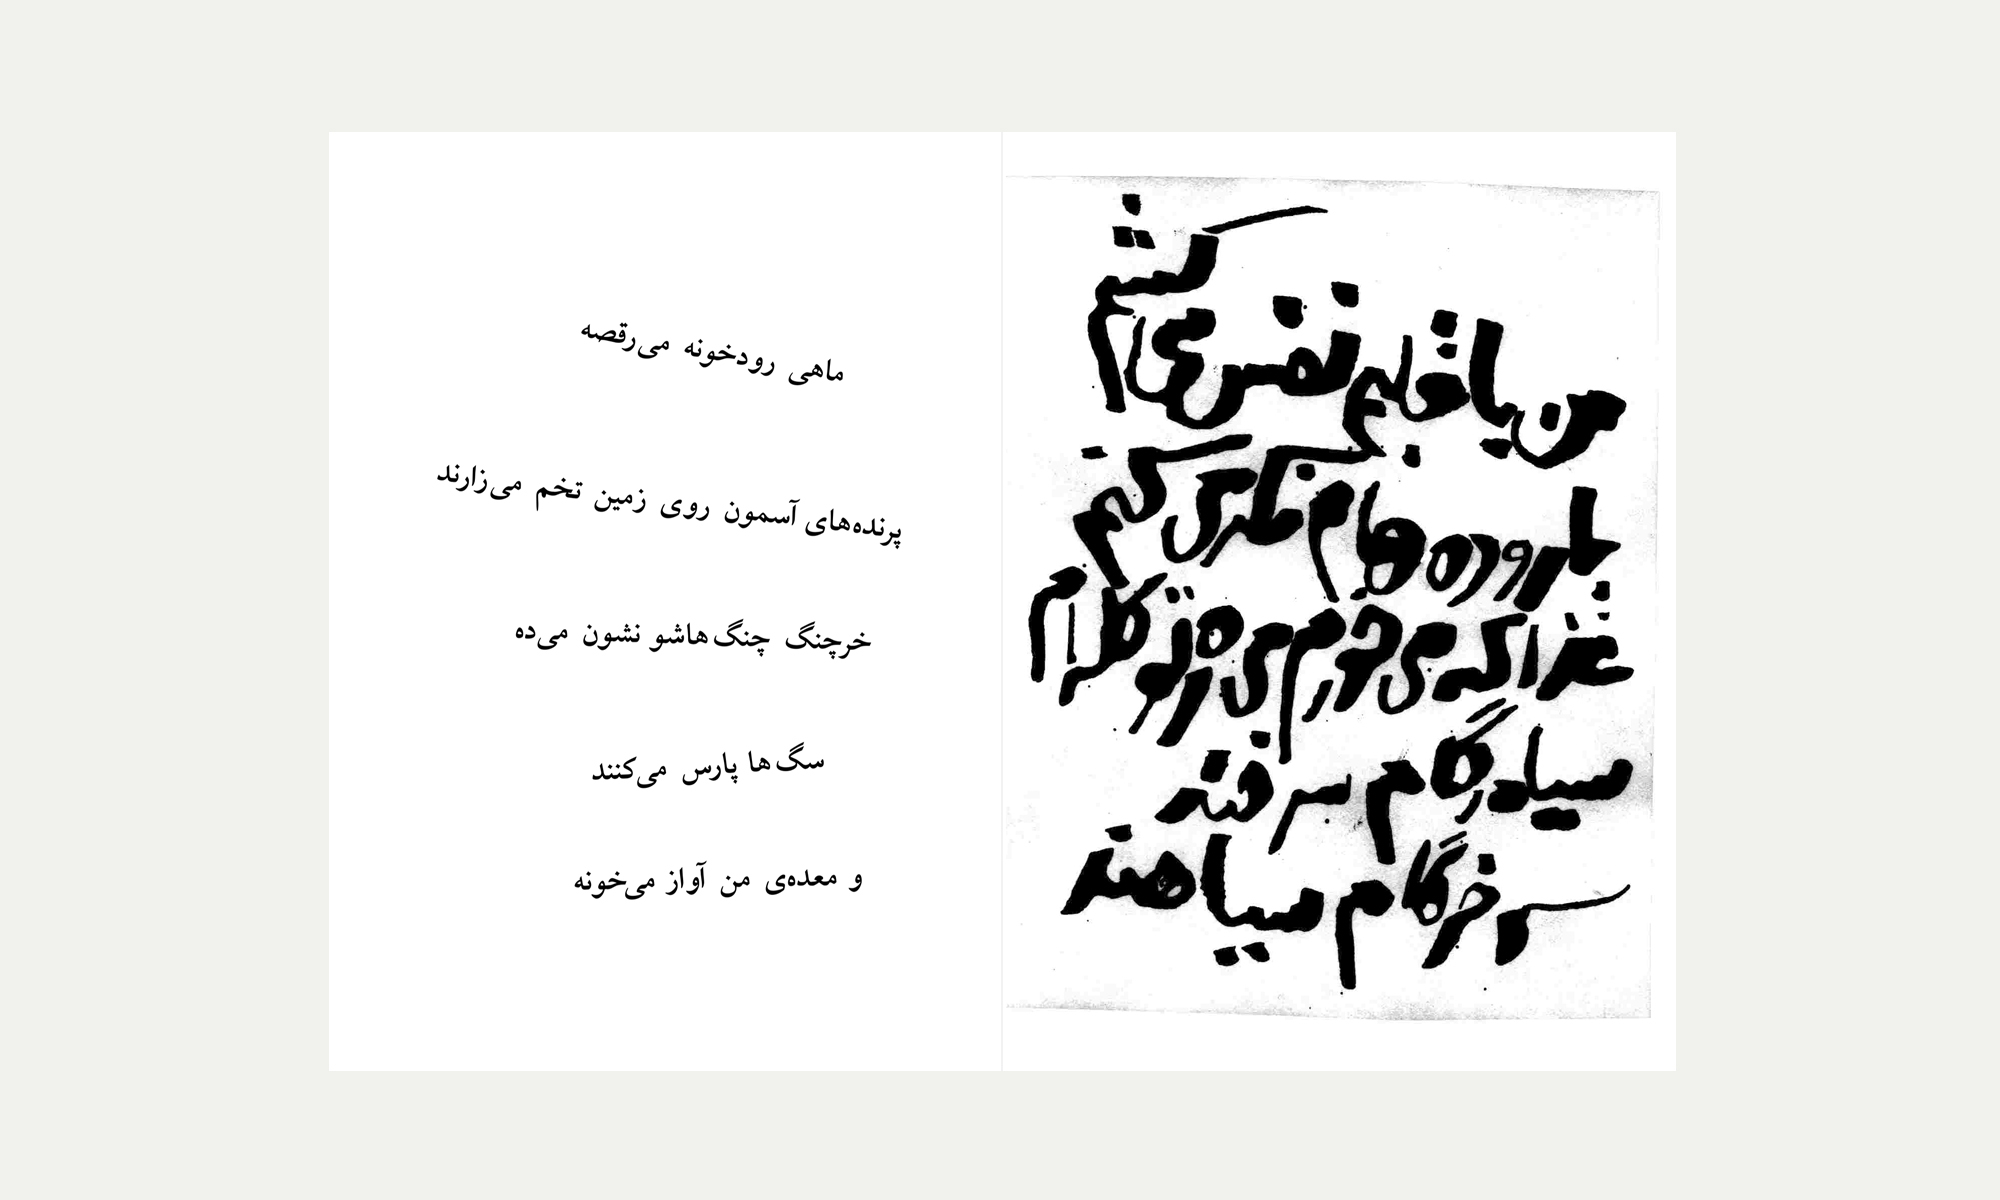 من با قلبم نفس می کشم
با روده هام فکر می کنم
غذا که می خورم می ره تو کله ام
سیاهرگام سرخند
سرخرگام سیاهند
ماهی رودخونه می‌رقصه
پرنده‌های آسمون روی زمین تخم می‌زارند
خرچنگ چنگ‌هاشو نشون می‌ده
سگ‌ها پارس می‌کنند
و معده‌ی من آواز می‌خونه